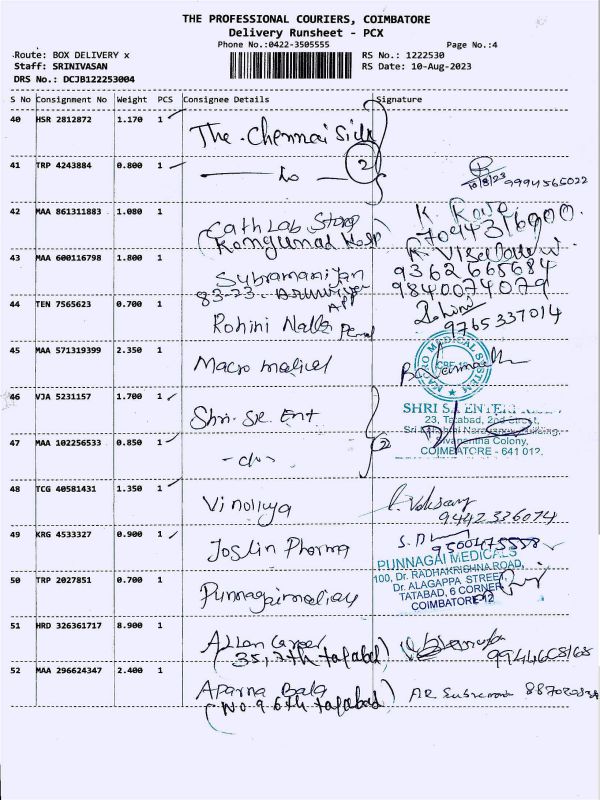 THE PROFESSIONAL COURIERS, COIMBATORE
Delivery Runsheet - PCX
Phone No.:0422-3505555 Page No.:4
Route: BOX DELIVERY x RS No.: 1222530
Staff: SRINIVASAN RS Date: 10-Aug-2023
DRS No.: DCJB122253004
S No Consignment No Weight PCS Consignee Details Signature
40 HSR 2812872 1.170 1 The Chennai Silk
41 TRP 4243884 0.800 1 2 10/8/23 9994565022
42 MAA 861311883 1.080 1 Cath Lab K.
(Kongunad Hosp
43 MAA 600116798 1.800 1 Subramaniyan 9362665684
83-23 App 9840074079
44 TEN 7565623 0.700 1 Rohini Nalla Rohini
9765337014
45 MAA 571319399 2.350 1 Macro medical
MACRO MEDICAL SYSTEM
CBE-12
46 VJA 5231157 1.700 1 Shri Sk Ent
SHRI
23, Tatabad, 2nd Street,
Sivanantha Colony,
COIMBATORE - 641 012.
47 MAA 102256533 0.850 1 -do- 2
48 TCG 40581431 1.350 1
9442336074
49 KRG 4533327 0.900 1 Joslin Pharma 9500475558
50 TRP 2027851 0.700 1 Punnagai
PUNNAGAI MEDICALS
100, Dr. RADHAKRISHNA ROAD,
Dr. ALAGAPPA STREET,
TATABAD, 6 CORNER
COIMBATORE-12
51 HRD 326361717 8.900 1 Allan Career
(35, 7th tatabad)
52 MAA 296624347 2.400 1 Aparna Bala
(No 9 6th tatabad)